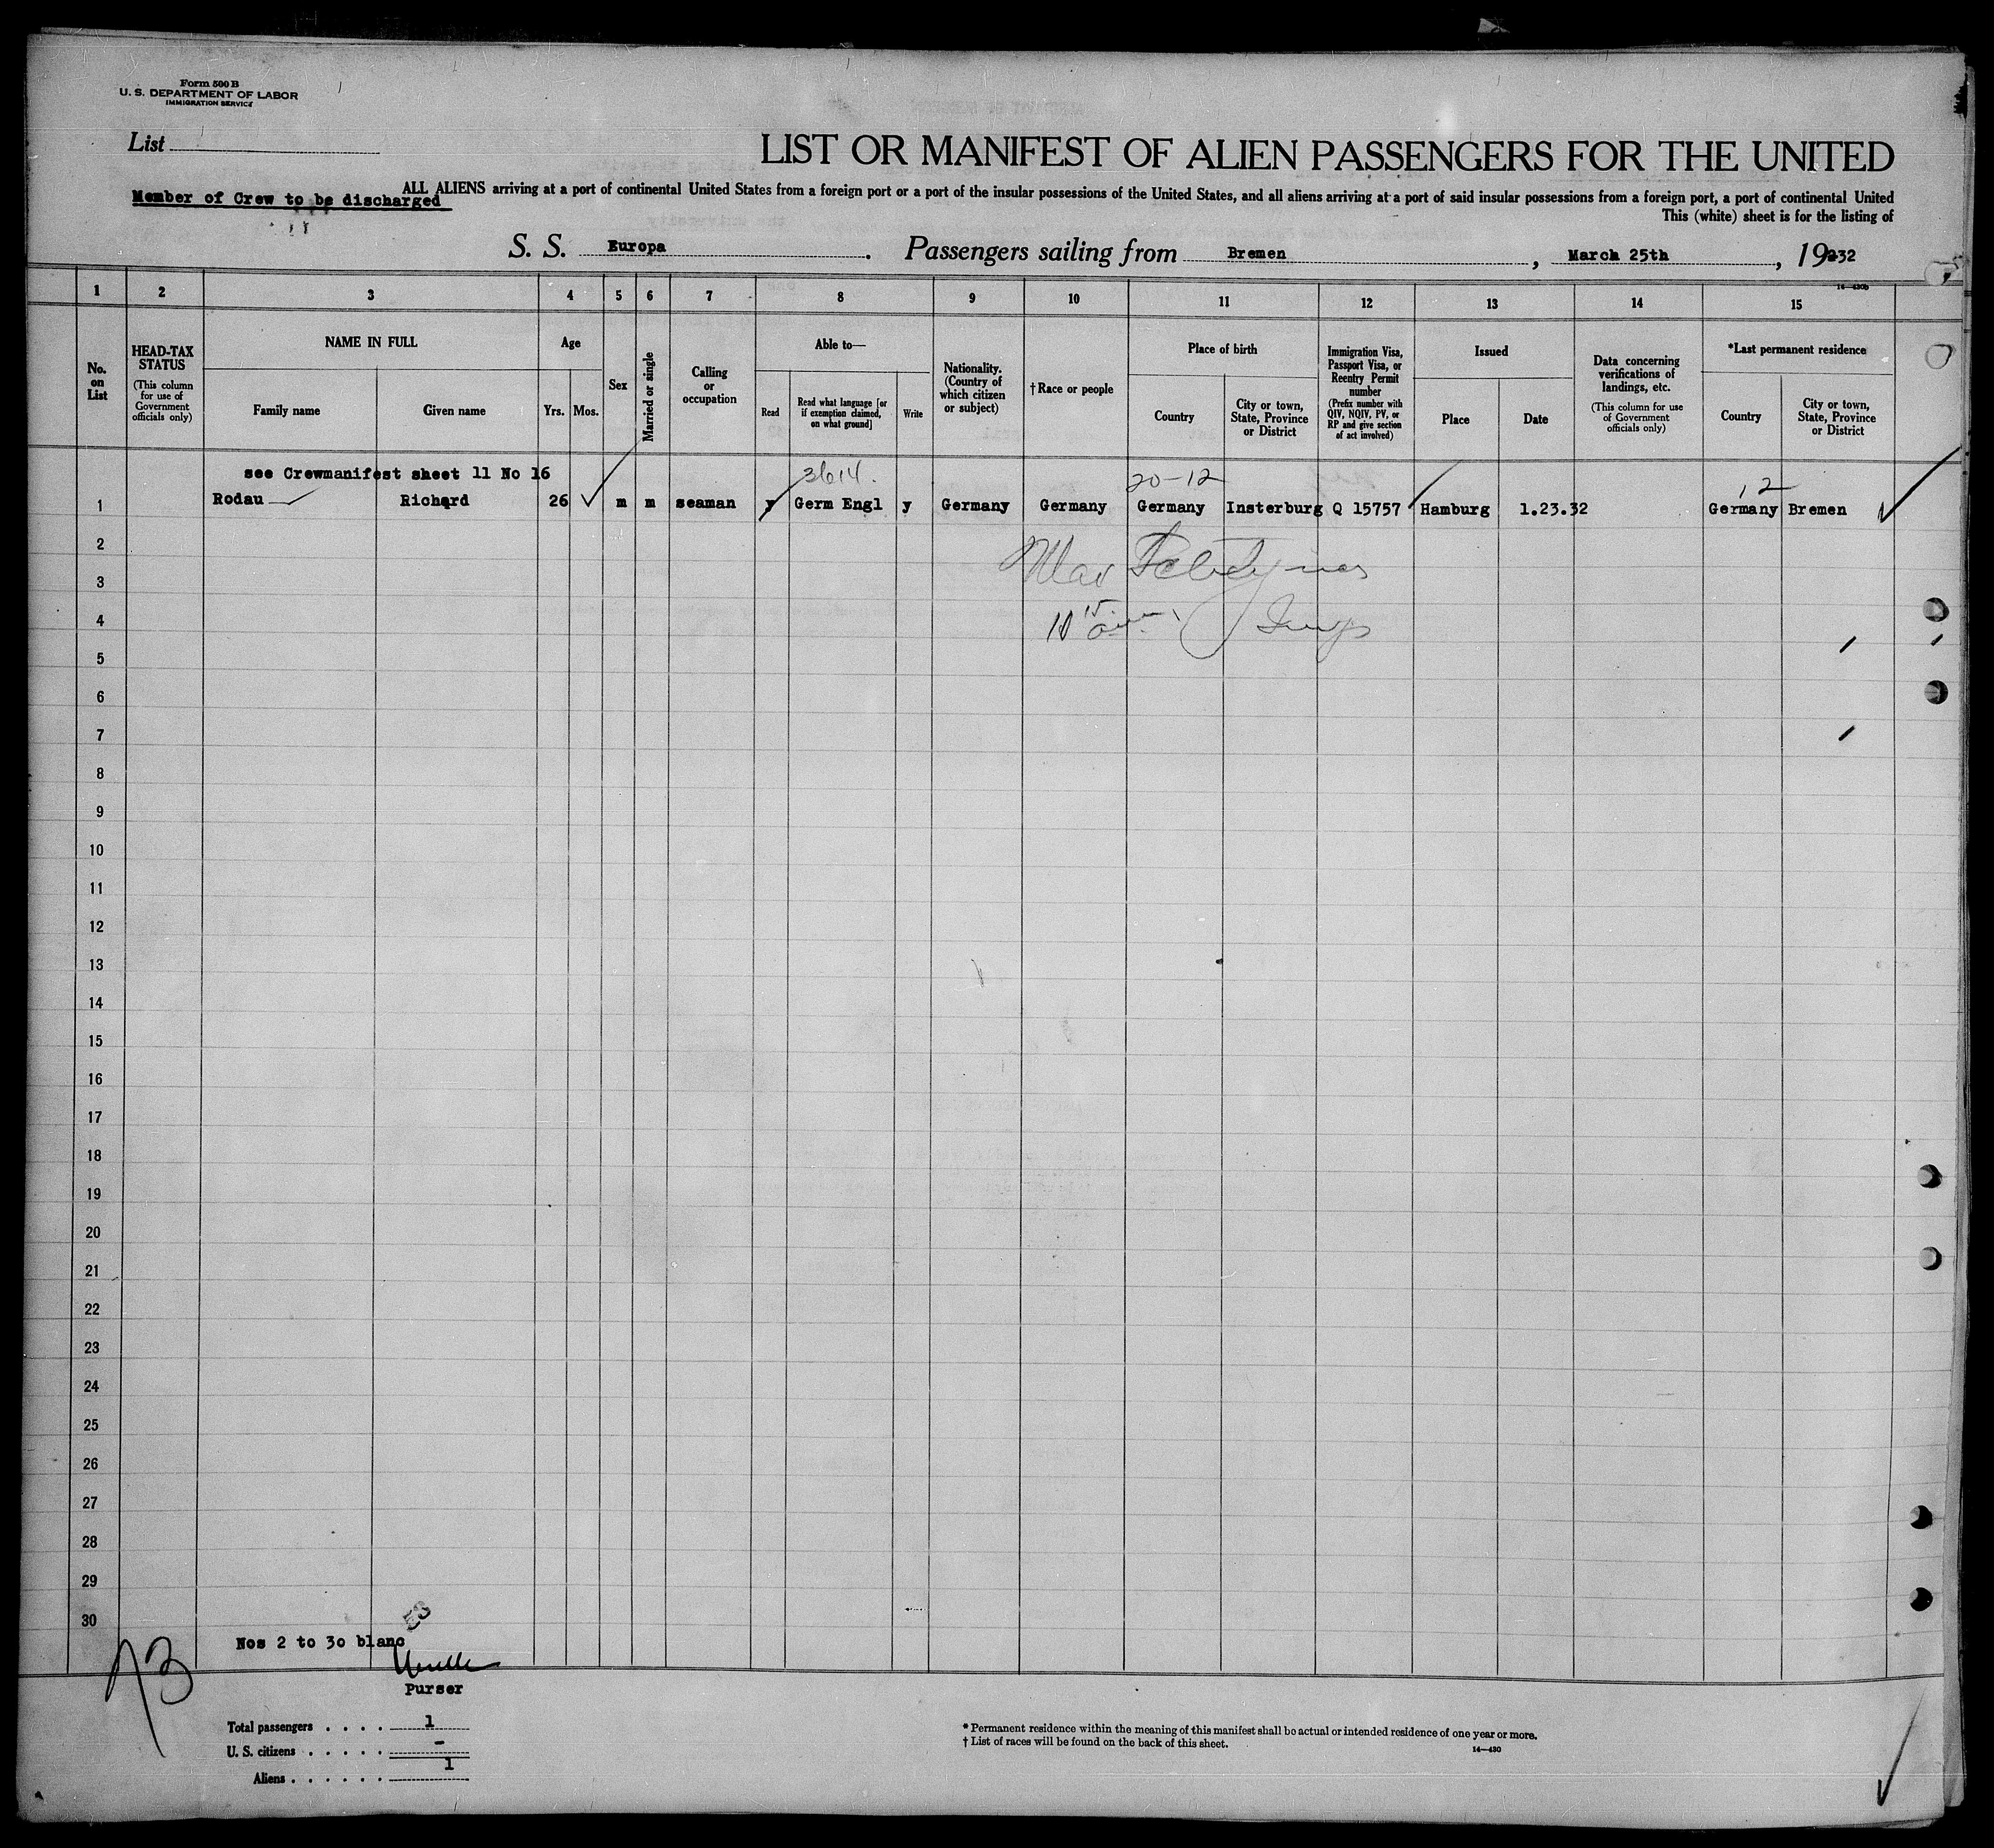 Form 500 B
U. S. DEPARTMENT OF LABOR
IMMIGRATION SERVICE
List
LIST OR MANIFEST OF ALIEN PASSENGERS FOR THE UNITED
ALL ALIENS arriving at a port of continental United States from a foreign port or a port of the insular possessions of the United States, and all aliens arriving at a port of said insular possessions from a foreign port, a port of continental United
Member of Crew to be discharged
This (white) sheet is for the listing of
S. S. Europa. Passengers sailing from Bremen, March 25th, 1932
14—430b
1 2 3 4 5 6 7 8 9 10 11 12 13 14 15
No. on List
HEAD-TAX STATUS (This column for use of Government officials only)
NAME IN FULL
Family name
Given name
Age
Yrs.
Mos.
Sex
Married or single
Calling or occupation
Able to—
Read
Read what language [or if exemption claimed, on what ground]
Write
Nationality. (Country of which citizen or subject)
†Race or people
Place of birth
Country
City or town, State, Province or District
Immigration Visa, Passport Visa, or Reentry Permit number (Prefix number with QIV, NQIV, PV, or RP and give section of act involved)
Issued
Place
Date
Data concerning verifications of landings, etc. (This column for use of Government officials only)
*Last permanent residence
Country
City or town, State, Province or District
see Crewmanifest sheet 11 No 16
3614.
20-12
12
1 Rodau Richard 26 m m seaman y Germ Engl y Germany Germany Germany Insterburg Q 15757 Hamburg 1.23.32 Germany Bremen
2
3
4
5
6
7
8
9
10
11
12
13
14
15
16
17
18
19
20
21
22
23
24
25
26
27
28
29
30
Nos 2 to 30 blanc
Purser
Total passengers . . . . 1
U. S. citizens . . . . . -
Aliens . . . . . . 1
* Permanent residence within the meaning of this manifest shall be actual or intended residence of one year or more.
† List of races will be found on the back of this sheet.
14—430